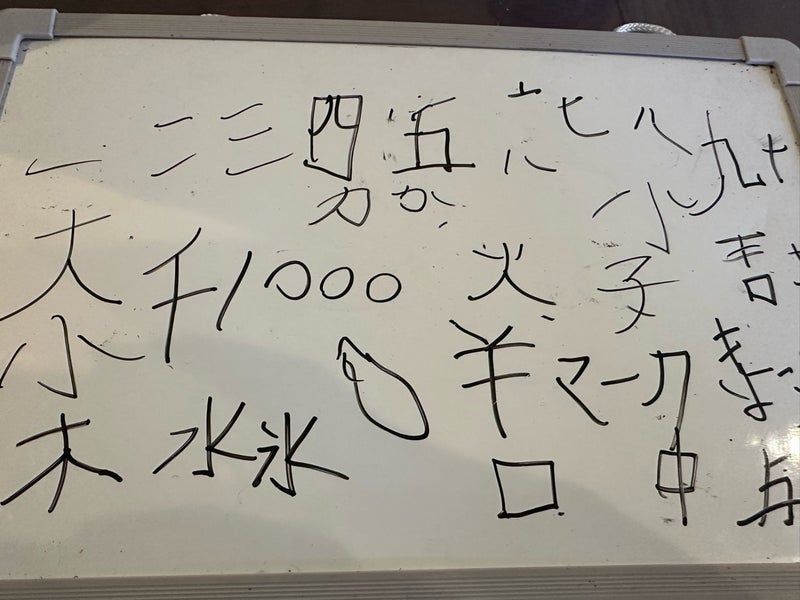 一 二 三 四 五 六 七 八 九 十
力 か 小
大 千 1000 火 子 青
小 羊 マーク
木 水 氷 口 中